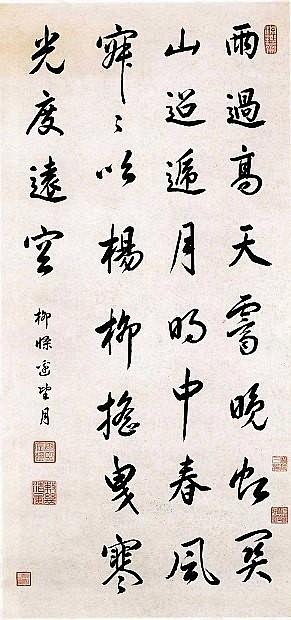 雨過高天霽晚虹関
山迢遞月明中春風
寂〻吹楊柳搖曳寒
光度遠空
柳條邊望月